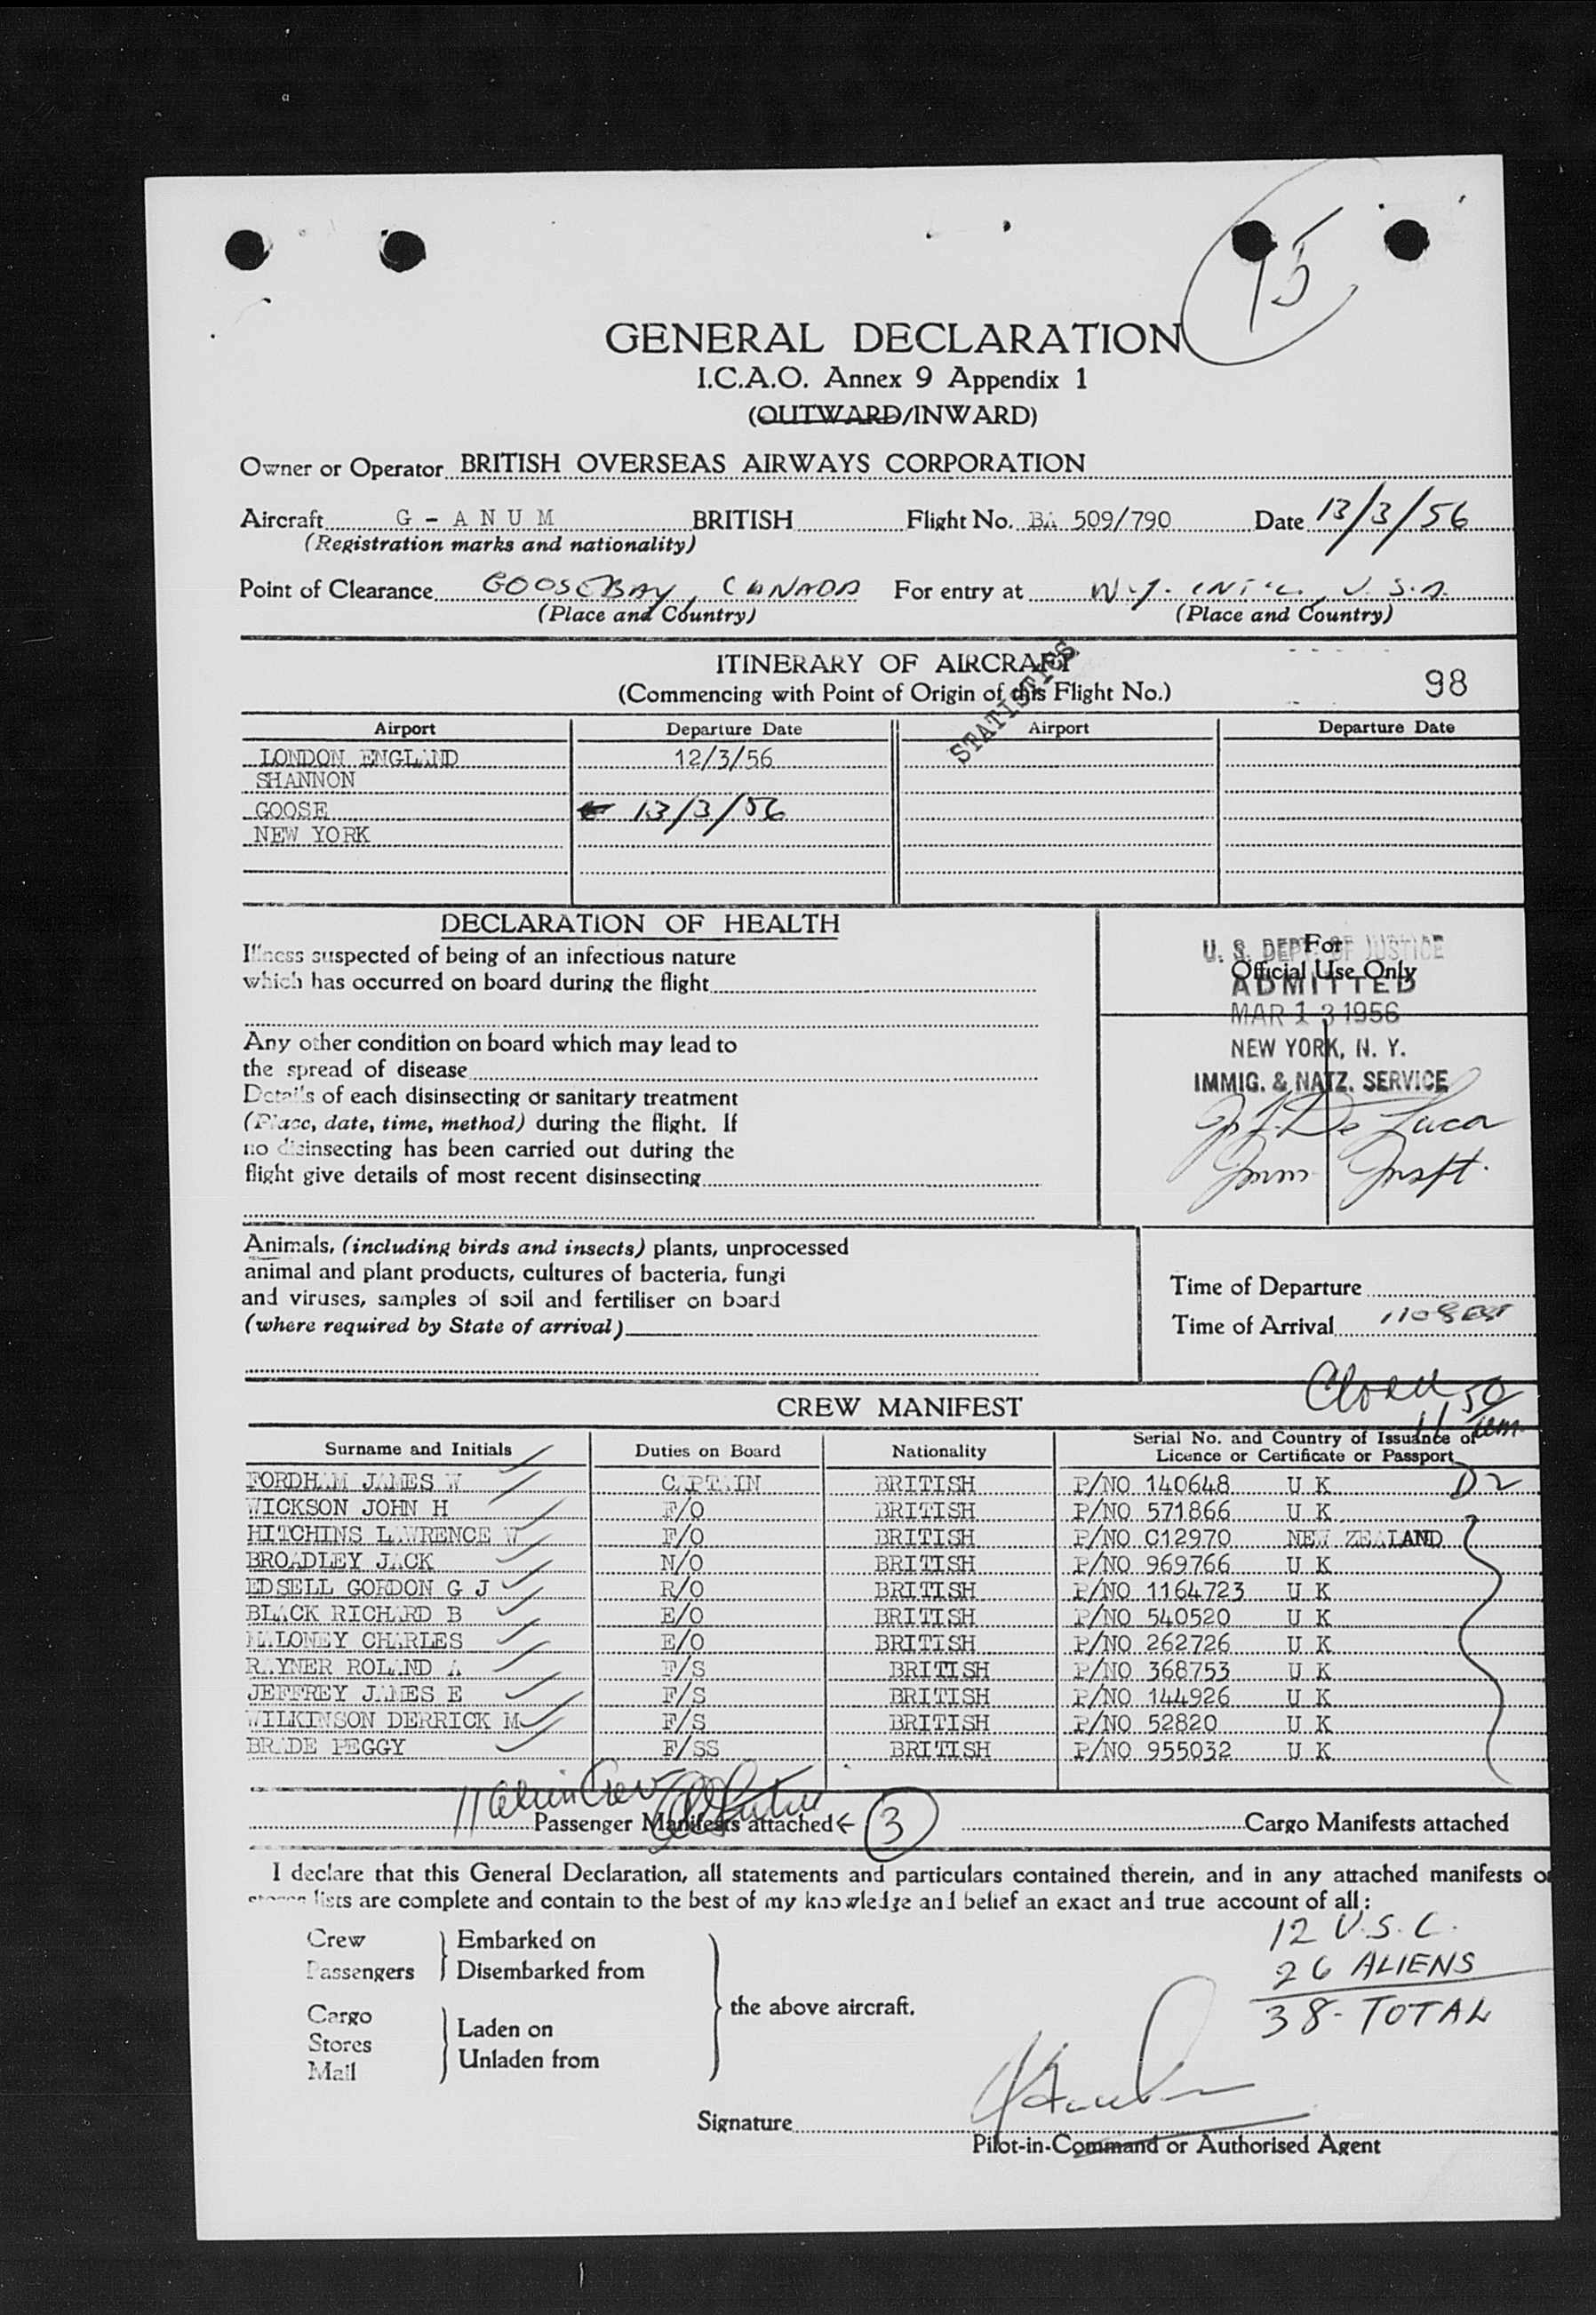 15
GENERAL DECLARATION
I.C.A.O. Annex 9 Appendix 1
(OUTWARD/INWARD)
Owner or Operator BRITISH OVERSEAS AIRWAYS CORPORATION
Aircraft G - A N U M BRITISH Flight No. BA 509/790 Date 13/3/56
(Registration marks and nationality)
Point of Clearance GOOSEBAY, CANADA For entry at N.Y. INT'L, U.S.A.
(Place and Country) (Place and Country)
ITINERARY OF AIRCRAFT
(Commencing with Point of Origin of this Flight No.) 98
STATISTICS
Airport Departure Date Airport Departure Date
LONDON ENGLAND 12/3/56
SHANNON
GOOSE 13/3/56
NEW YORK
DECLARATION OF HEALTH
Illness suspected of being of an infectious nature
which has occurred on board during the flight
Any other condition on board which may lead to
the spread of disease
Details of each disinsecting or sanitary treatment
(Place, date, time, method) during the flight. If
no disinsecting has been carried out during the
flight give details of most recent disinsecting
For
Official Use Only
U. S. DEPT. OF JUSTICE
ADMITTED
MAR 13 1956
NEW YORK, N. Y.
IMMIG. & NATZ. SERVICE
De Luca
Imm Inspt.
Animals, (including birds and insects) plants, unprocessed
animal and plant products, cultures of bacteria, fungi
and viruses, samples of soil and fertiliser on board
(where required by State of arrival)
Time of Departure
Time of Arrival 1108 EST
CREW MANIFEST
Surname and Initials Duties on Board Nationality Serial No. and Country of Issuance of
Licence or Certificate or Passport
FORDHAM JAMES W CAPTAIN BRITISH P/NO 140648 U K D2
WICKSON JOHN H F/O BRITISH P/NO 571866 U K
HITCHINS LAWRENCE W F/O BRITISH P/NO C12970 NEW ZEALAND
BROADLEY JACK N/O BRITISH P/NO 969766 U K
EDSELL GORDON G J R/O BRITISH P/NO 1164723 U K
BLACK RICHARD B E/O BRITISH P/NO 540520 U K
MALONEY CHARLES E/O BRITISH P/NO 262726 U K
RAYNER ROLAND A F/S BRITISH P/NO 368753 U K
JEFFREY JAMES E F/S BRITISH P/NO 144926 U K
WILKINSON DERRICK M F/S BRITISH P/NO 52820 U K
BRADE PEGGY F/SS BRITISH P/NO 955032 U K
11 Alien Crew
Passenger Manifests attached 3 Cargo Manifests attached
I declare that this General Declaration, all statements and particulars contained therein, and in any attached manifests or
stores lists are complete and contain to the best of my knowledge and belief an exact and true account of all:
Crew Embarked on
Passengers Disembarked from
the above aircraft.
Cargo
Stores
Mail
Laden on
Unladen from
12 U.S.C.
26 ALIENS
38 - TOTAL
Signature
Pilot-in-Command or Authorised Agent